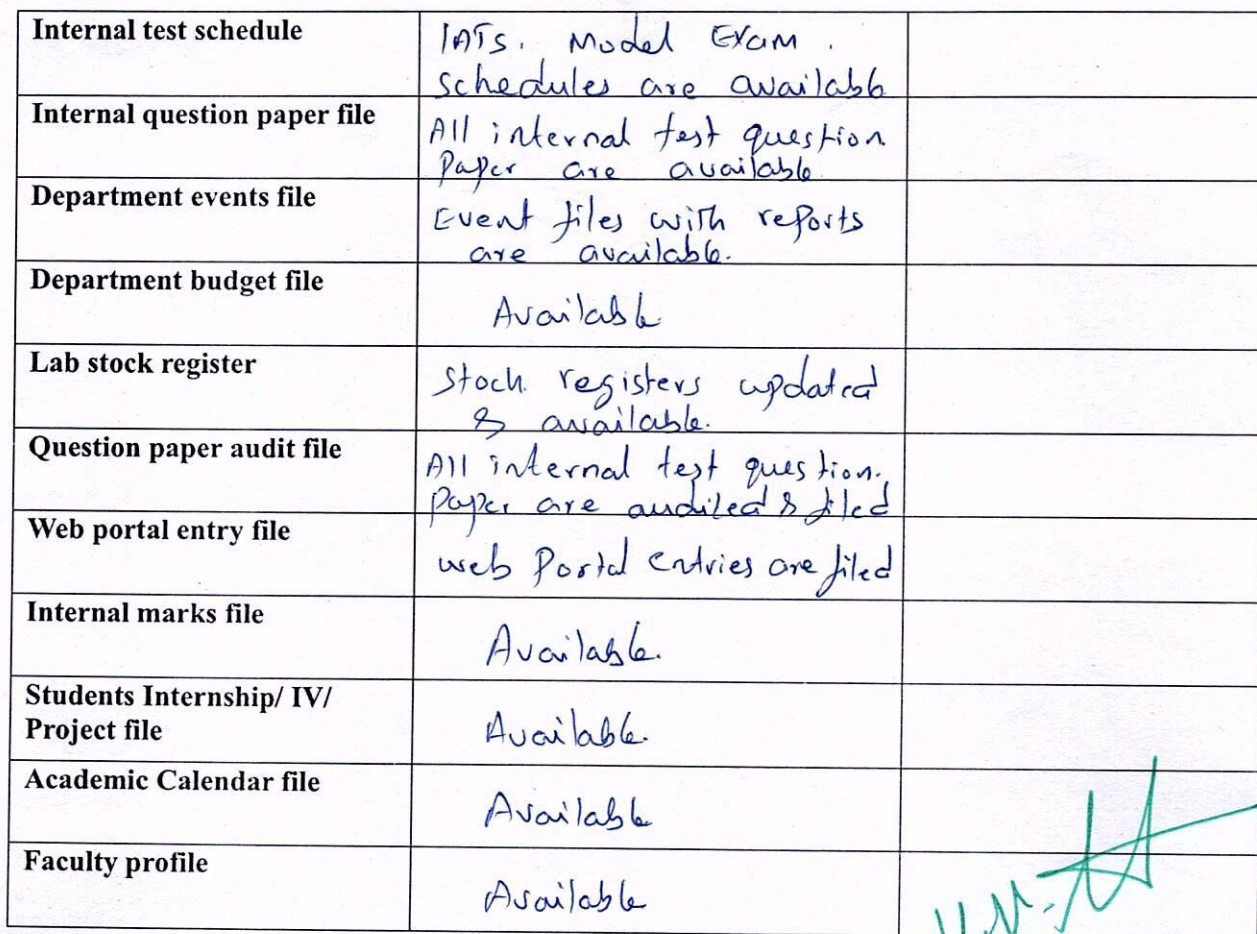 Internal test schedule
IATs. Model Exam.
schedules are available
Internal question paper file
All internal test question
Paper are available
Department events file
Event files with reports
are available.
Department budget file
Available
Lab stock register
Stock registers updated
& available.
Question paper audit file
All internal test question.
Paper are audited & filed
Web portal entry file
web Portal Entries are filed
Internal marks file
Available.
Students Internship/ IV/
Project file
Available.
Academic Calendar file
Available
Faculty profile
Available